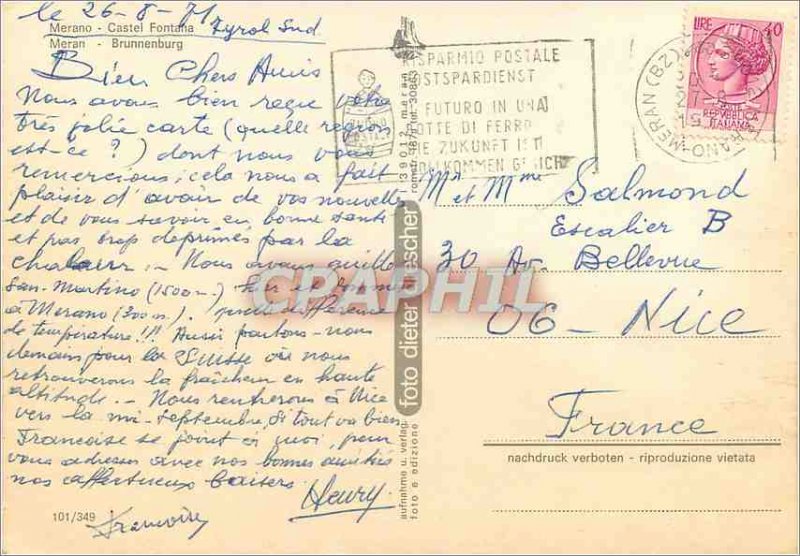 le 26-8-71
Tyrol Sud
Merano - Castel Fontana
Meran - Brunnenburg
Bien Chers Amis
Nous avons bien reçu votre
très jolie carte (quelle region
est-ce ?) dont nous vous
remercions; cela nous a fait
plaisir d'avoir de vos nouvelles
et de vous savoir en bonne santé
et pas trop déprimés par la
chaleur. - Nous avons quitté
San-Martino (1500 m) hier et sommes
à Merano (300 m).
de température !!! Aussi partons-nous
demain pour la Suisse où nous
retrouverons la fraîcheur en haute
altitude. - Nous rentrerons à Nice
vers la mi-septembre, si tout va bien
Françoise se joint à moi, pour
vous adresser avec nos bonnes amitiés
nos affectueux baisers.
Henry
Françoise
101/349
RISPARMIO POSTALE
POSTSPARDIENST
FUTURO IN UNA
BOTTE DI FERRO
DIE ZUKUNFT IST
VOLLKOMMEN GESICHERT
MERANO-MERAN (BZ)
LIRE 40
REPVBBLICA
ITALIANA
39012 meran
foto dieter drescher
aufnahme u. verlag
foto e edizione
Mr et Mme Salmond
Escalier B
30 Av. Bellevue
06 - Nice
France
nachdruck verboten - riproduzione vietata
CPAPHIL